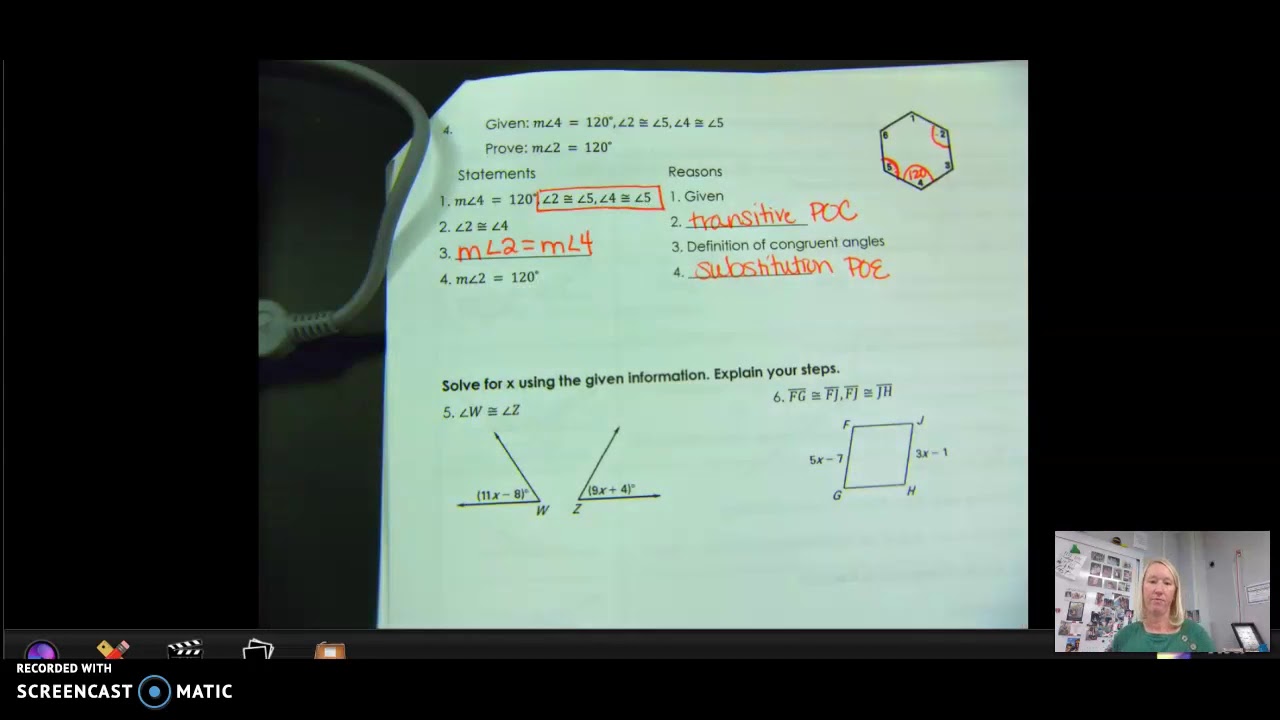 4. Given: m∠4 = 120°, ∠2 ≅ ∠5, ∠4 ≅ ∠5
Prove: m∠2 = 120°
Statements Reasons
1. m∠4 = 120° ∠2 ≅ ∠5, ∠4 ≅ ∠5 1. Given
2. ∠2 ≅ ∠4 2. transitive POC
3. m∠2 = m∠4 3. Definition of congruent angles
4. m∠2 = 120° 4. substitution POE
1
6 2
5 120 3
4
Solve for x using the given information. Explain your steps.
5. ∠W ≅ ∠Z
6. F̅G̅ ≅ F̅J̅, F̅J̅ ≅ J̅H̅
(11x − 8)° W
Z (9x + 4)°
F J
5x − 7 3x − 1
G H
RECORDED WITH
SCREENCAST MATIC